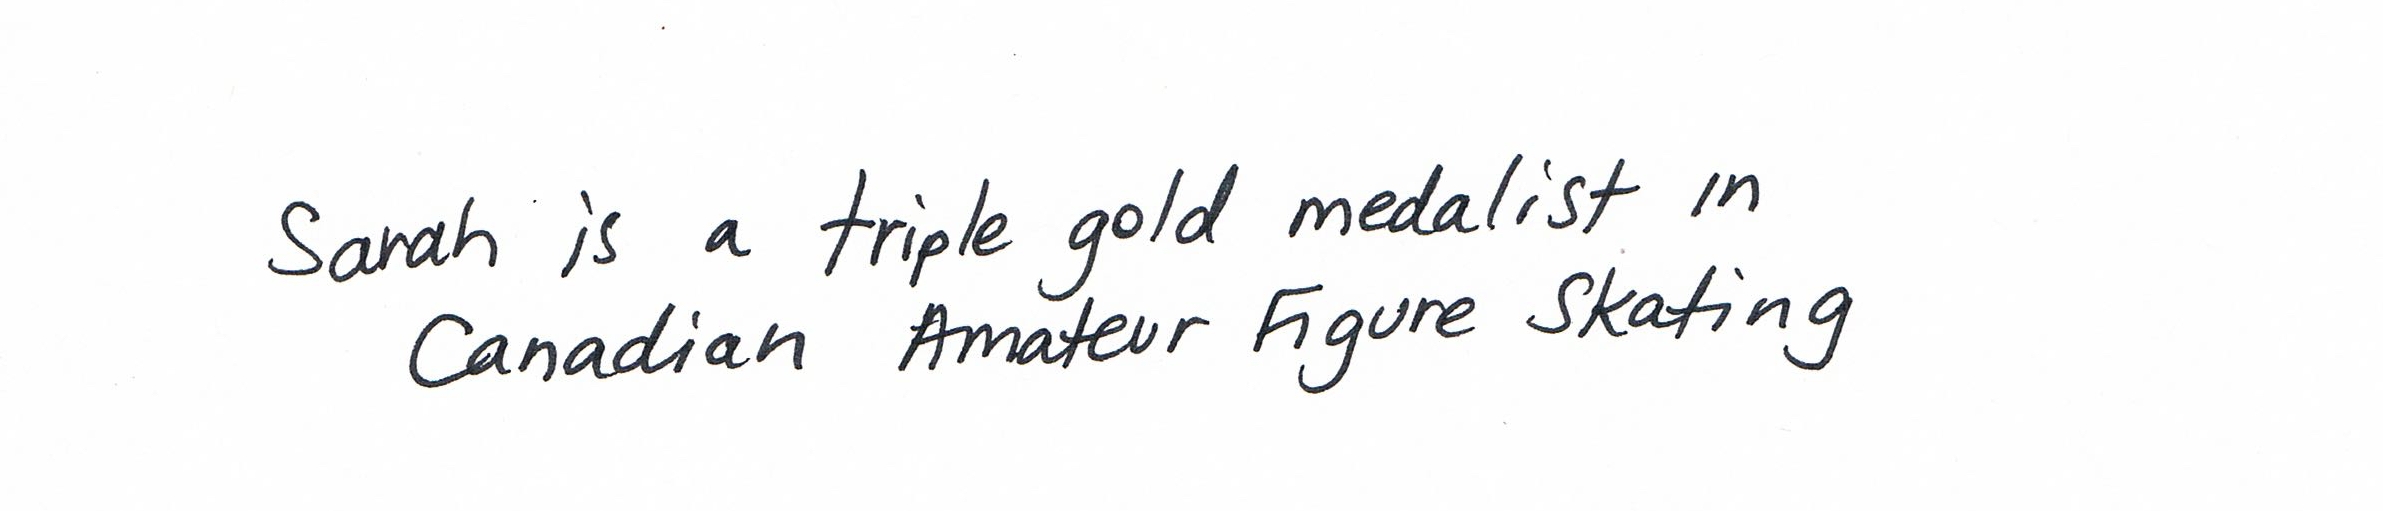 Sarah is a triple gold medalist in
Canadian Amateur Figure Skating